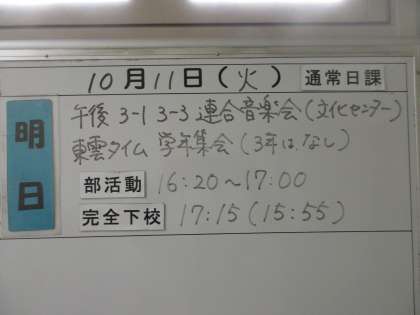 10月11日(火) 通常日課
明日
午後 3-1 3-3 連合音楽会(文化センター)
東雲タイム 学年集会(3年はなし)
部活動 16:20~17:00
完全下校 17:15(15:55)